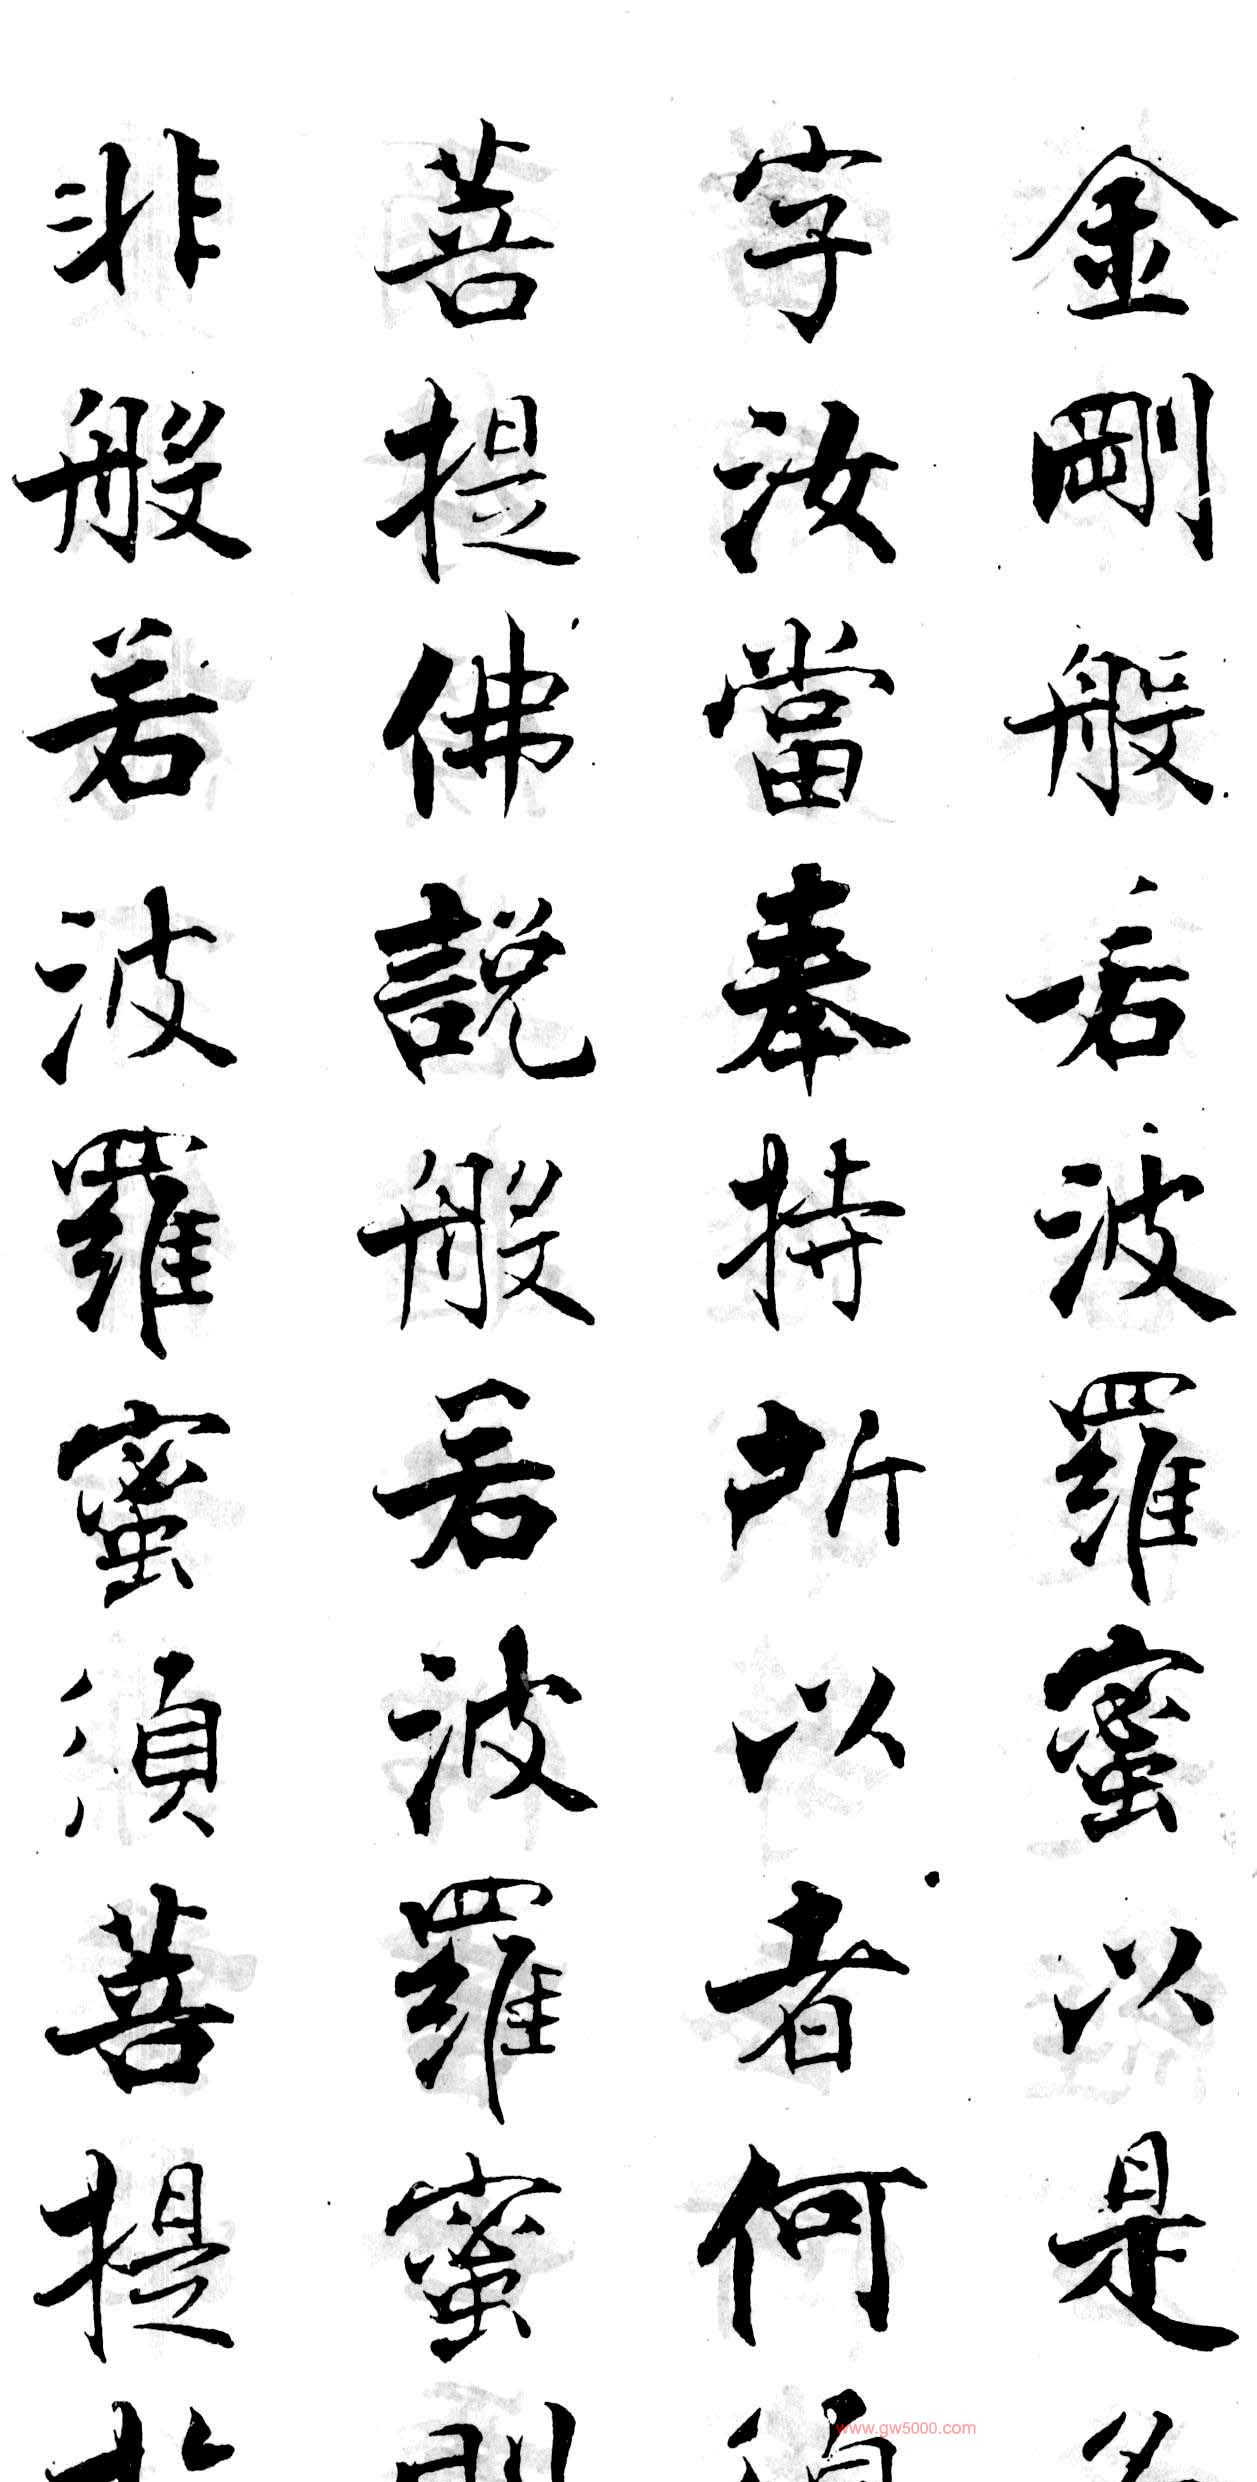 金剛般若波羅蜜以是名
字汝當奉持所以者何須
菩提佛說般若波羅蜜則
非般若波羅蜜須菩提於
www.gw5000.com